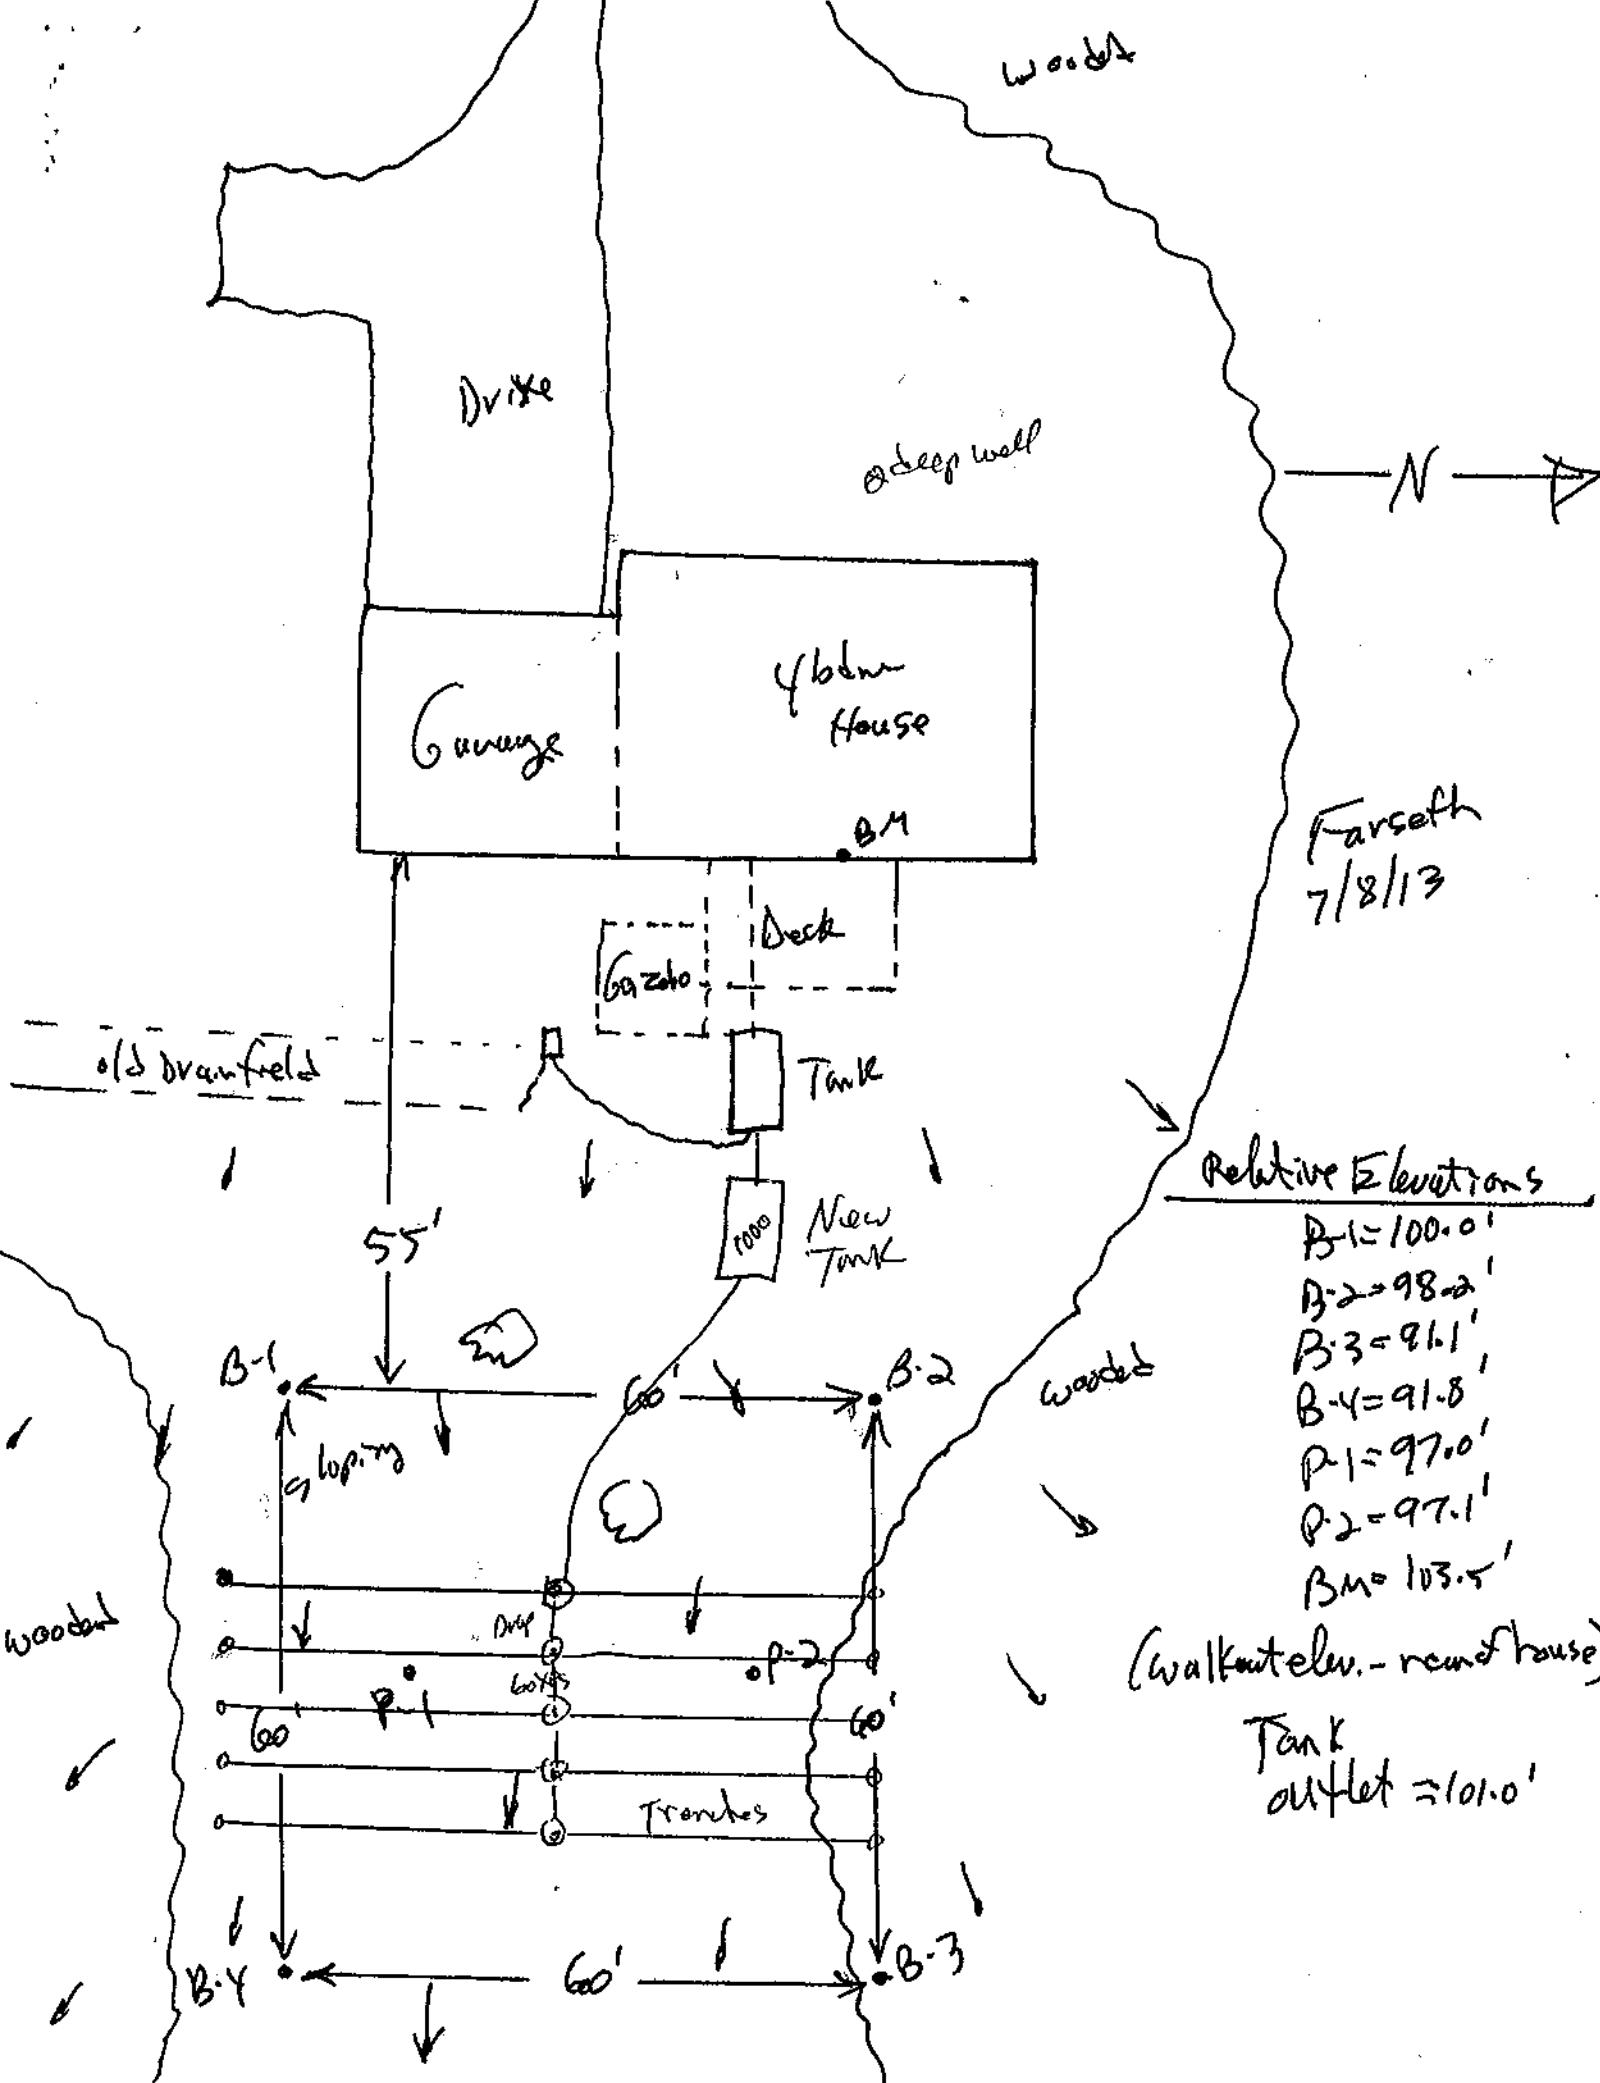 Wooded
Drive
deep well
N
4 bdrm
House
Garage
BM
Farseth
7/8/13
Deck
Gazebo
old Drainfield
Tank
55'
1000
New
Tank
Relative Elevations
B-1=100.0'
B-2=98.2'
B-3=91.1'
B-4=91.8'
P-1=97.0'
P-2=97.1'
BM=103.5'
(walkout elev. - rear of house)
Tank
outlet =101.0'
B-1
60'
B-2
wooded
sloping
wooded
Drop
boxes
P-2
P-1
60'
60'
Trenches
B-4
60'
B-3